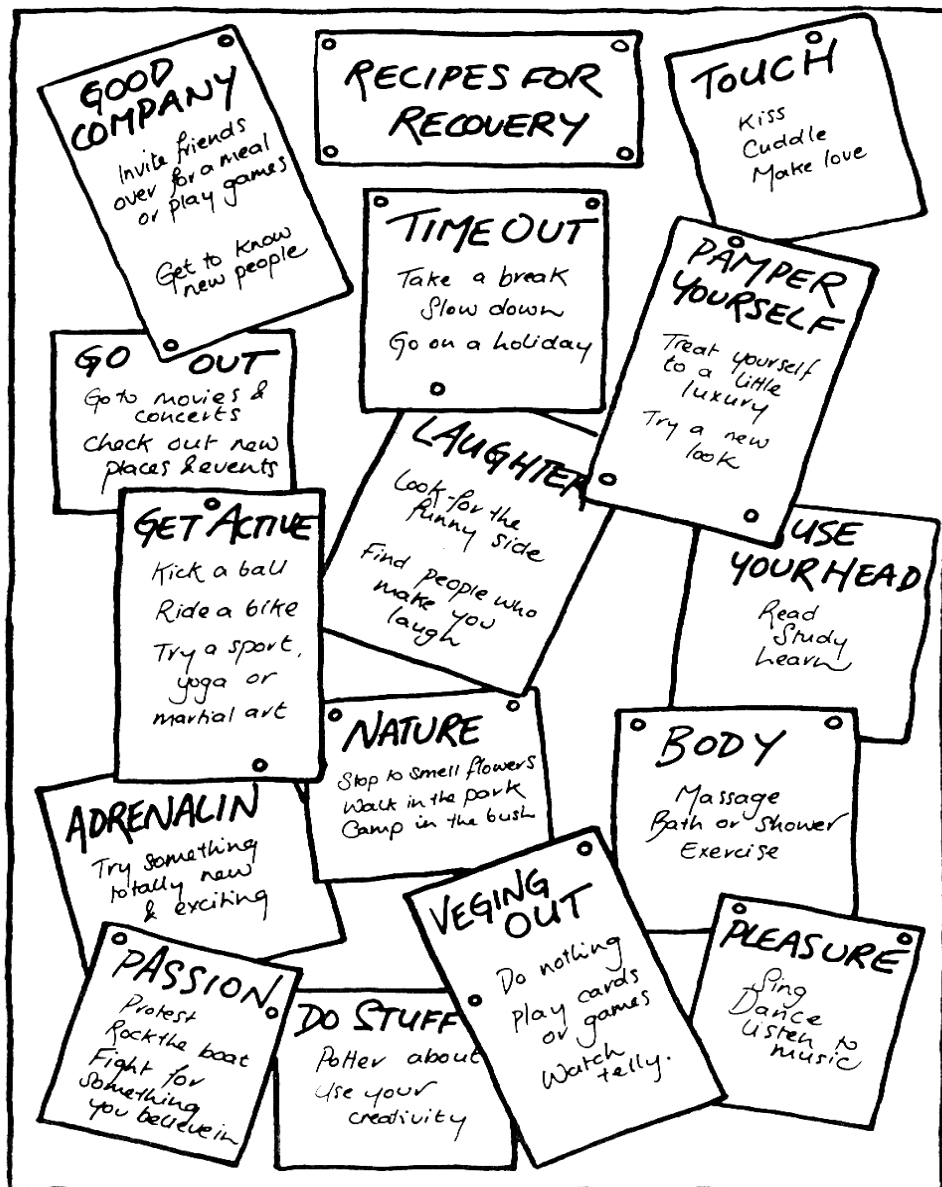 RECIPES FOR
RECOVERY
GOOD
COMPANY
Invite friends
over for a meal
or play games
Get to know
new people
TOUCH
Kiss
Cuddle
Make love
TIME OUT
Take a break
Slow down
Go on a holiday
PAMPER
YOURSELF
Treat yourself
to a little
luxury
Try a new
look
GO OUT
Go to movies &
concerts
Check out new
places & events
LAUGHTER
Look for the
funny side
Find people who
make you
laugh
GET ACTIVE
Kick a ball
Ride a bike
Try a sport,
yoga or
martial art
USE
YOUR HEAD
Read
Study
Learn
NATURE
Stop to smell flowers
Walk in the park
Camp in the bush
BODY
Massage
Bath or shower
Exercise
ADRENALIN
Try something
totally new
& exciting
VEGING
OUT
Do nothing
Play cards
or games
Watch
telly.
PLEASURE
Sing
Dance
Listen to
music
PASSION
Protest
Rock the boat
Fight for
something
you believe in
DO STUFF
Potter about
Use your
creativity